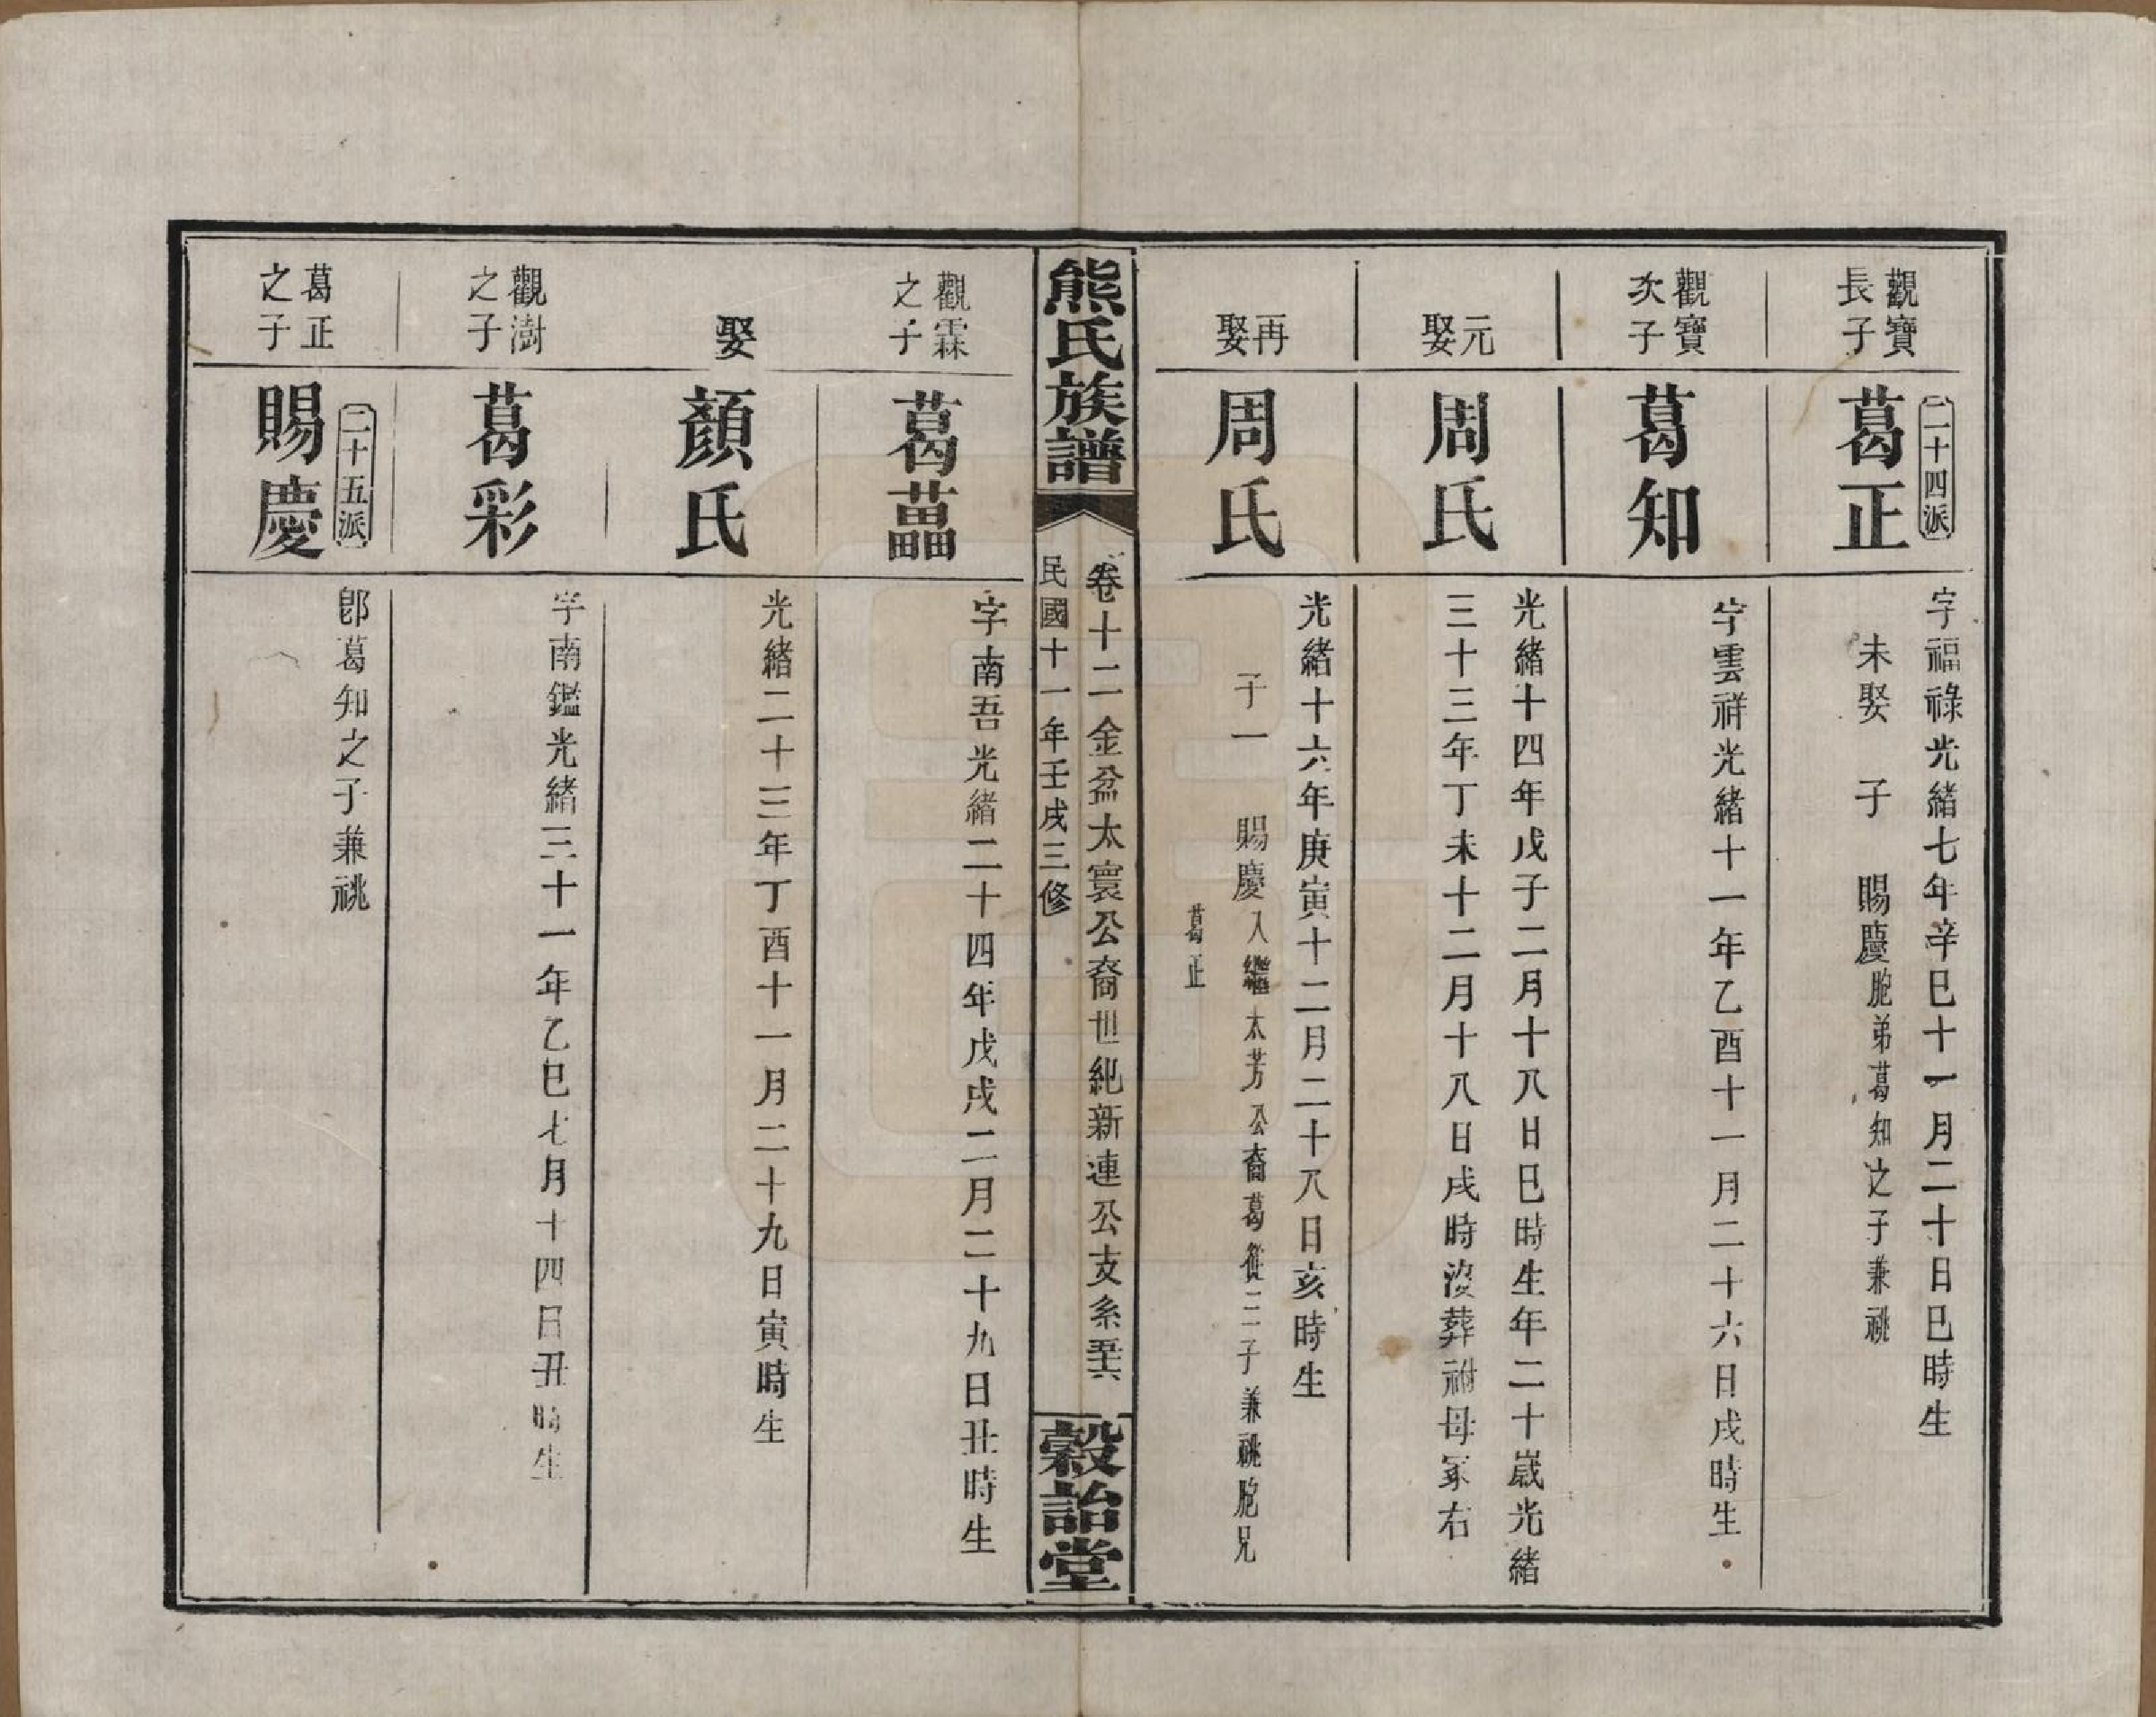 觀寶
長子
二十四派
葛正
字福祿光緒七年辛巳十一月二十日巳時生
未娶 子 賜慶胞弟葛知之子兼祧
觀寶
次子
葛知
字雲祥光緒十一年乙酉十一月二十六日戌時生
元
娶
周氏
光緒十四年戊子二月十八日巳時生年二十歲光緒
三十三年丁未十二月十八日戌時沒葬祔母冢右
再
娶
周氏
光緒十六年庚寅十二月二十八日亥時生
子一 賜慶入繼太芳公裔葛從三子兼祧胞兄
葛正
熊氏族譜
卷十二金盆太寰公裔世紀新連公支系五十六
民國十一年壬戌三修
穀詒堂
觀霖
之子
葛藟
字南吾光緒二十四年戊戌二月二十九日丑時生
娶
顏氏
光緒二十三年丁酉十一月二十九日寅時生
觀澍
之子
葛彩
字南鑑光緒三十一年乙巳七月十四日丑時生
葛正
之子
二十五派
賜慶
卽葛知之子兼祧